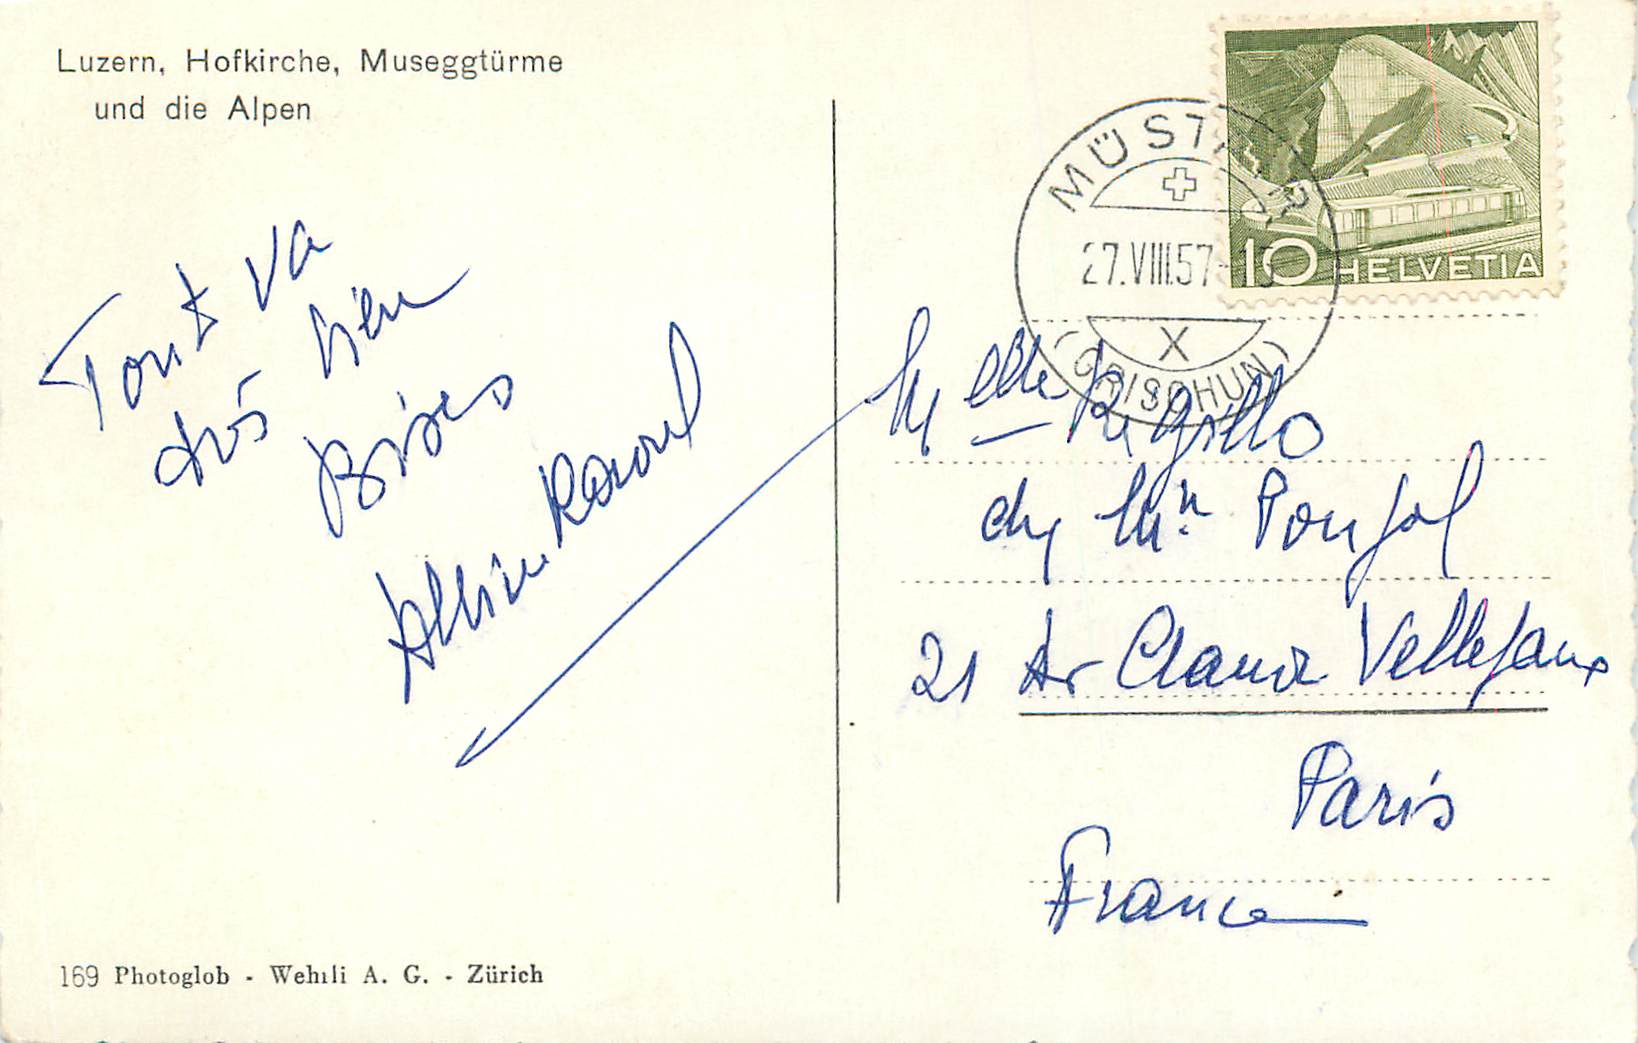 Luzern, Hofkirche, Museggtürme
und die Alpen
Tout va
très bien
Bises
Albine Raoul
169 Photoglob - Wehrli A. G. - Zürich
MÜSTAIR
27.VIII.57-15
X
(GRISCHUN)
10 HELVETIA
Melle Rigollo
chez Mr
21 Av Claude Vellefaux
Paris
France